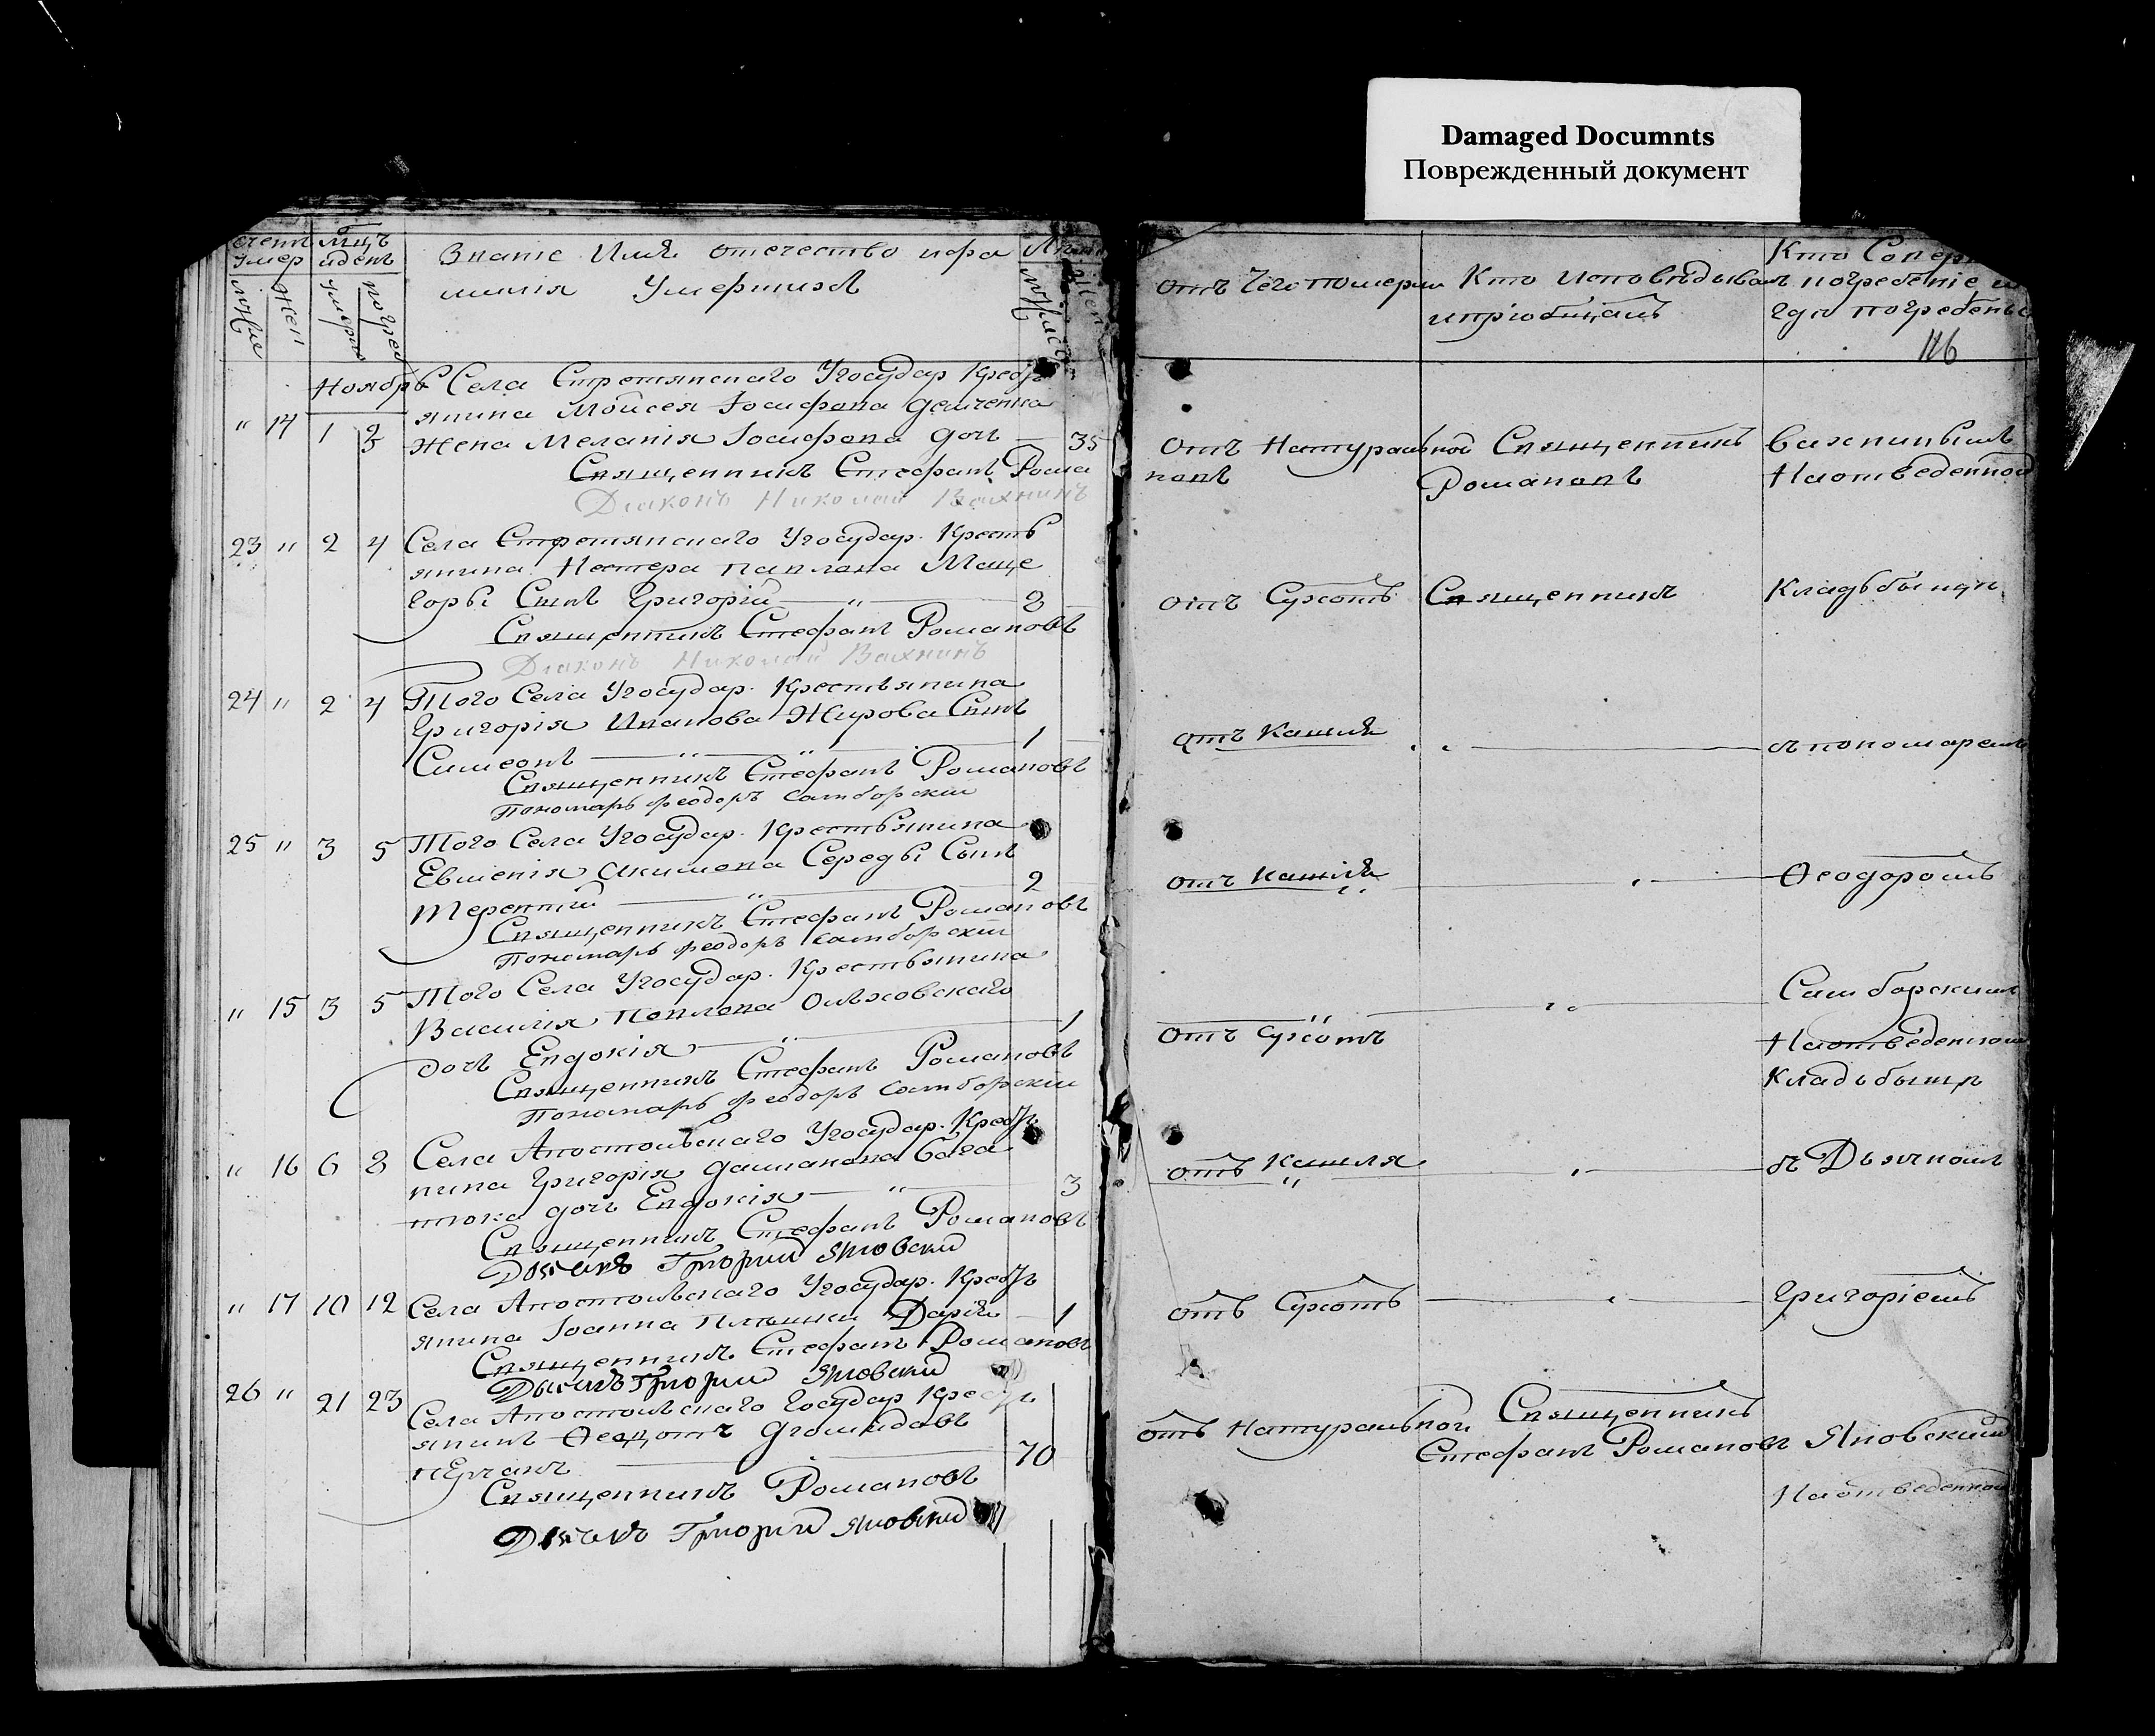 Damaged Documnts
Поврежденный документ
счетъ умер
мужие
жен
Мцъ иденъ
умерш
погреб
Звание Имя отечество ифа
милия Умершихъ
Ноябрь Села Стретянскаго Угосудар Крестъ
янина Мойсея Иосифова Демченка
" 14 1 3 Жена Меланія Іосифова доч — 35
Священникъ Стефанъ Рома
новъ
Діаконъ Николай Вахнинъ
23 " 2 4 Села Стретянскаго Угосудар. Кресть
янина Нестера Павлова Маще
горы Сынъ Григорій — " — 2
Священникъ Стефанъ Романовъ
Діаконъ Николай Вахнинъ
24 " 2 4 Того Села Угосудар. Крестьянина
Григорія Иванова Жирова Сынъ
Симеонъ — " — " — 1
Священникъ Стефанъ Романовъ
Пономарь Феодоръ Самборскій
25 " 3 5 Того Села Угосудар. Крестьянина
Евменія Акимова Середы Сынъ
Терентій — " — 2
Священникъ Стефанъ Романовъ
Пономарь Феодоръ Самборскій
" 15 3 5 Того Села Угосудар. Крестьянина
Василія Павлова Ольховскаго
дочь Евдокія — " — 1
Священникъ Стефанъ Романовъ
Пономарь Феодоръ Самборскій
" 16 6 8 Села Апостольскаго Угосудар. Крестъ
нина Григорія Дамианова
дочь Евдокія — " — 3
Священникъ Стефанъ Романовъ
Дьячекъ Григорий Яновский
" 17 10 12 Села Апостольскаго Угосудар. Крестъ
янина Іоанна Дарія — 1
Священникъ Стефанъ Романовъ
Дьячекъ Григорий Яновский
26 " 21 23 Села Апостольскаго Государ Кресть
янинъ Ѳедотъ
— 70
Священникъ Романовъ
Дьячекъ Григорий Яновский
Отъ Чего померли
Кто Исповѣдывалъ
ипріобщалъ
Кто Совер
погребеніе и
гдѣ погребены
116
Отъ Натуральной
Священникъ
Романовъ
Вахнинымъ
Наотведенной
отъ Сухотъ
Священникъ
Кладьбыщи
отъ Кашля
съ пономаремъ
отъ Кашля
Ѳеодоромъ
отъ Сухотъ
Самборскимъ
Наотведенном
Кладьбыщи
отъ Кашля
съ Дьячкомъ
отъ Сухотъ
Григоріемъ
отъ Натуральной
Священникъ
Стефанъ Романовъ
Яновскимъ
Наотведенной